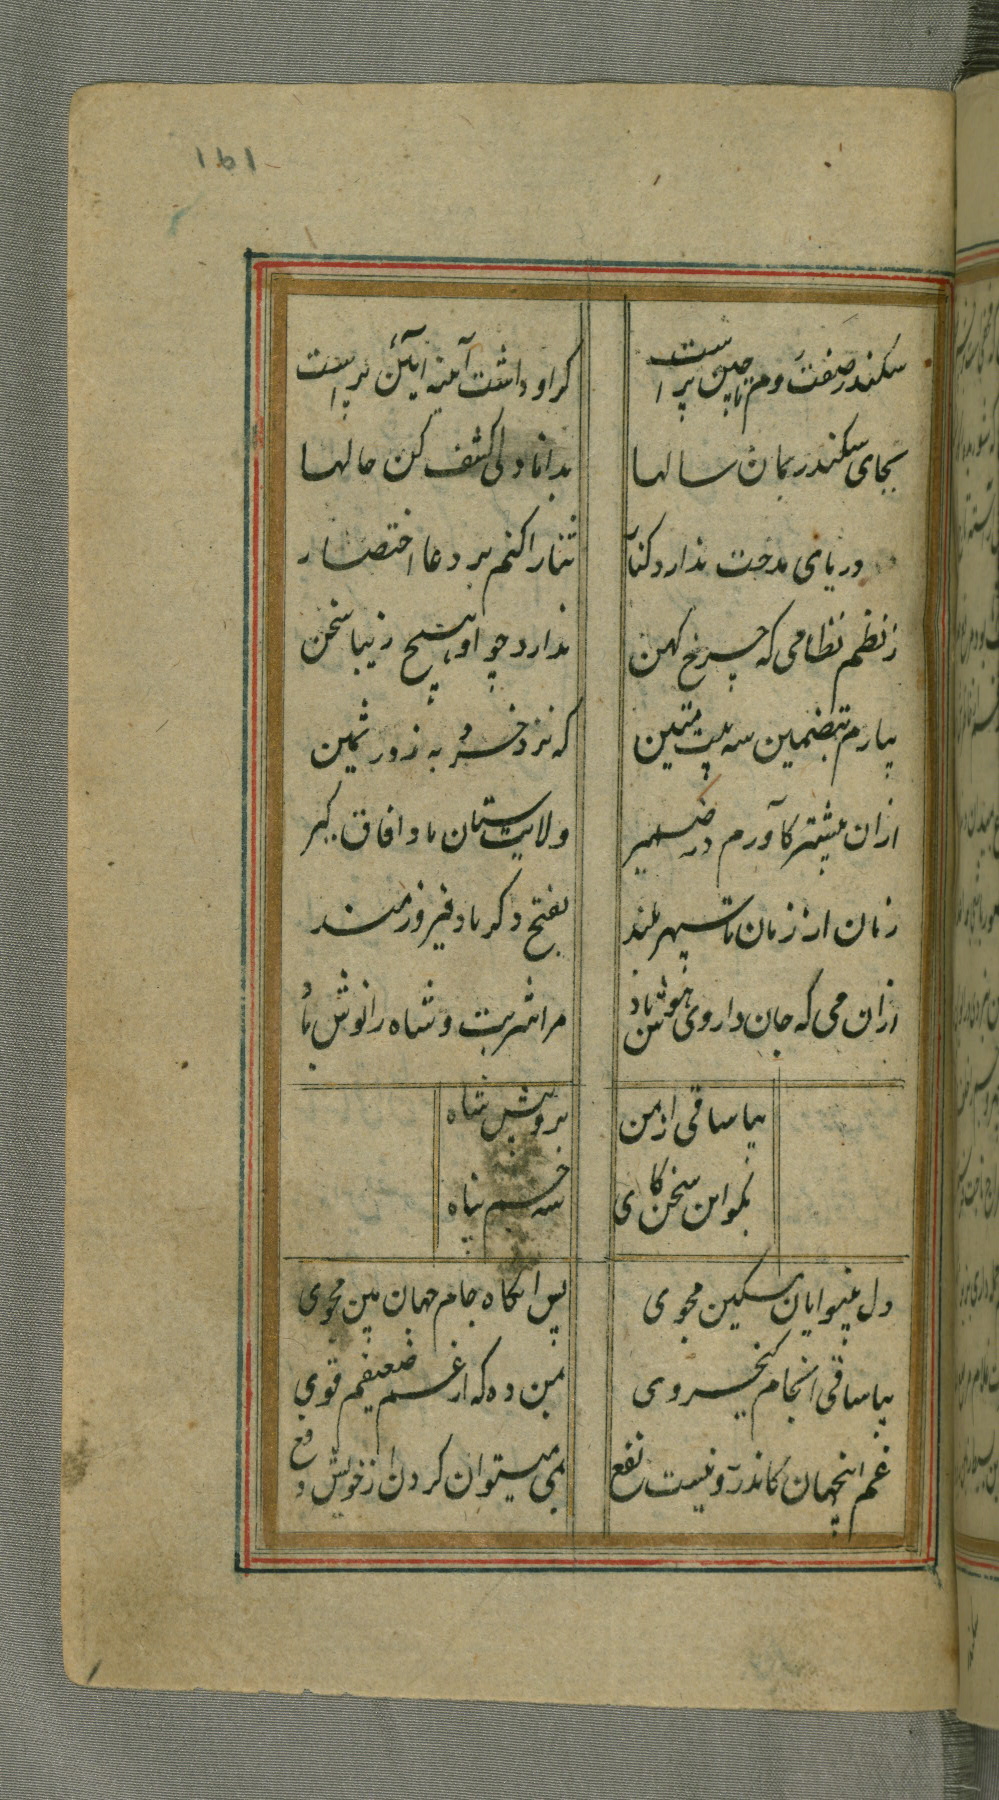 ۱۵۱
سکندر صفت روم تا چین تراست
کر او داشت آینه آیین تراست
بجای سکندر بمان سالها
بدانا دلی کشف کن حالها
دریای مدحت ندارد کنار
ثنا را کنم بر دعا اختصار
ز نظم نظامی که چرخ کهن
ندارد چو او هیچ زیبا سخن
بیارم بتضمین سه بیت متین
که نزد خرد به ز در ثمین
ازان بیشتر کآورم در ضمیر
ولایت ستان باد و افاق کیر
زمان از زمان تا سپهر بلند
بفتح دکر باد فیروزمند
ازان می که جان داروی هوش باد
مرا شربت و شاه را نوش باد
بیا ساقی از من
برو پیش شاه
بکو این سخن کای
شه جم پناه
دل بینوایان مسکین بجوی
پس انکاه جام جهان بین بجوی
بیا ساقی انجام کیخسروی
بمن ده که از غم ضعیفم قوی
غم اینجهان کاندرو نیست نفع
بمی میتوان کردن از خویش دفع